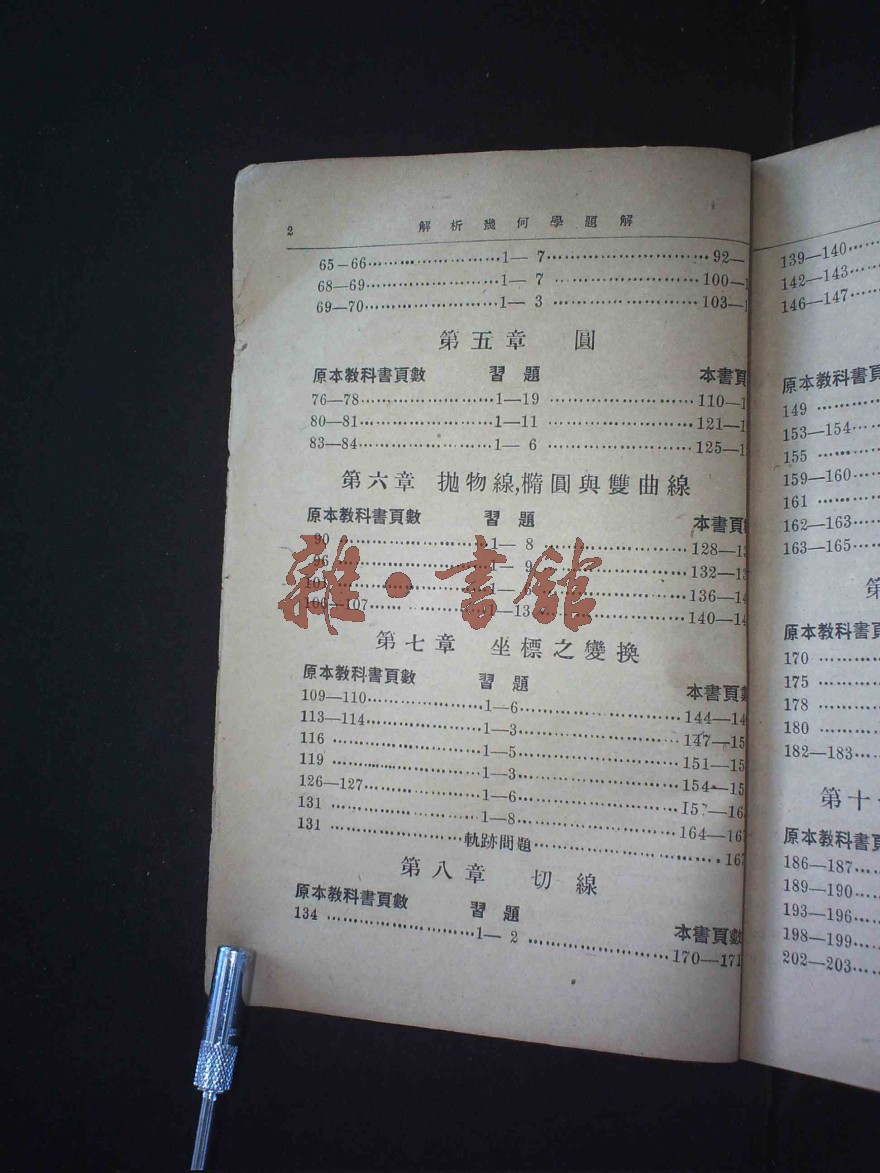 2 解析幾何學題解
65-66……………………1— 7……………………92—
68—69……………………1— 7……………………100—1
69—70……………………1— 3……………………103—1
第五章 圓
原本教科書頁數 習題 本書頁
76—78……………………1—19……………………110—1
80—81……………………1—11……………………121—1
83—84……………………1— 6……………………125—1
第六章 拋物線,橢圓與雙曲線
原本教科書頁數 習題 本書頁
90……………………1— 8……………………128—13
96……………………1— 9……………………132—13
……………………1— ……………………136—14
—107……………………1—13……………………140—14
雜·書館
第七章 坐標之變換
原本教科書頁數 習題 本書頁
109—110……………………1—6……………………144—14
113—114……………………1—3……………………147—15
116……………………1—5……………………151—15
119……………………1—3……………………154—15
126—127……………………1—6……………………157—16
131……………………1—8……………………164—16
131……………………軌跡問題……………………167
第八章 切線
原本教科書頁數 習題 本書頁
134……………………1— 2……………………170—171
139—140……
142—143……
146—147……
原本教科書頁
149……
153—154……
155……
159—160……
161……
162—163……
163—165……
第
原本教科書頁
170……
175……
178……
180……
182—183……
第十
原本教科書頁
186—187……
189—190……
193—196……
198—199……
202—203……